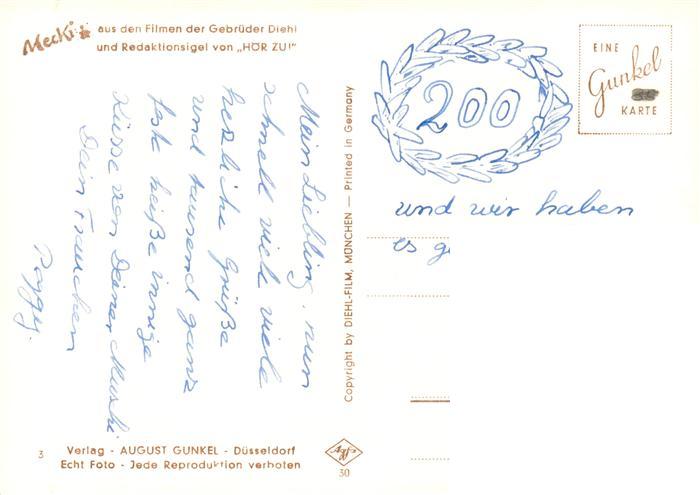 Mecki
aus den Filmen der Gebrüder Diehl
und Redaktionsigel von „HÖR ZU!"
Mein Liebling, nun
schnell viel viele
herzliche Grüße
und tausend ganz
feste heiße innige
Küsse von Deiner
Dein Frauchen
Copyright by DIEHL-FILM, MÜNCHEN — Printed in Germany
200
EINE
Gunkel
KARTE
und wir haben
es
3
Verlag - AUGUST GUNKEL - Düsseldorf
Echt Foto - Jede Reproduktion verboten
Agfa
30